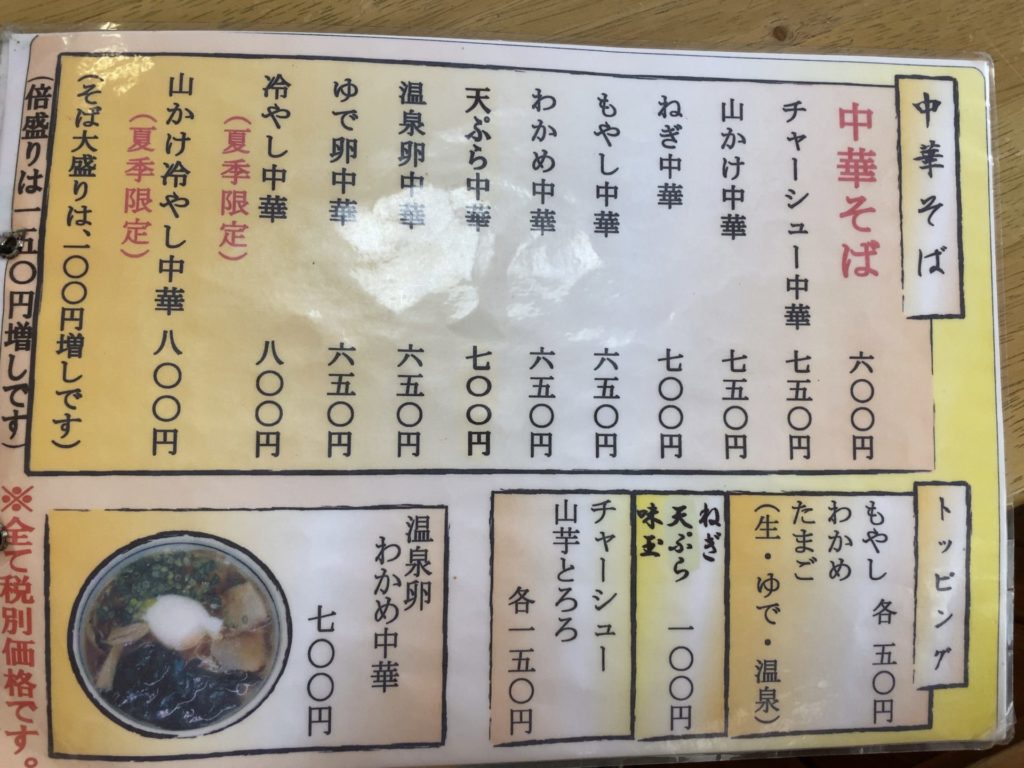 中華そば
中華そば 六〇〇円
チャーシュー中華 七五〇円
山かけ中華 七五〇円
ねぎ中華 七〇〇円
もやし中華 六五〇円
わかめ中華 六五〇円
天ぷら中華 七〇〇円
温泉卵中華 六五〇円
ゆで卵中華 六五〇円
冷やし中華 八〇〇円
(夏季限定)
山かけ冷やし中華 八〇〇円
(夏季限定)
(そば大盛りは、一〇〇円増しです)
(倍盛りは一五〇円増しです)
トッピング
もやし 各 五〇円
わかめ
たまご
(生・ゆで・温泉)
ねぎ
天ぷら 一〇〇円
味玉
チャーシュー
山芋とろろ
各一五〇円
温泉卵
わかめ中華
七〇〇円
※全て税別価格です。